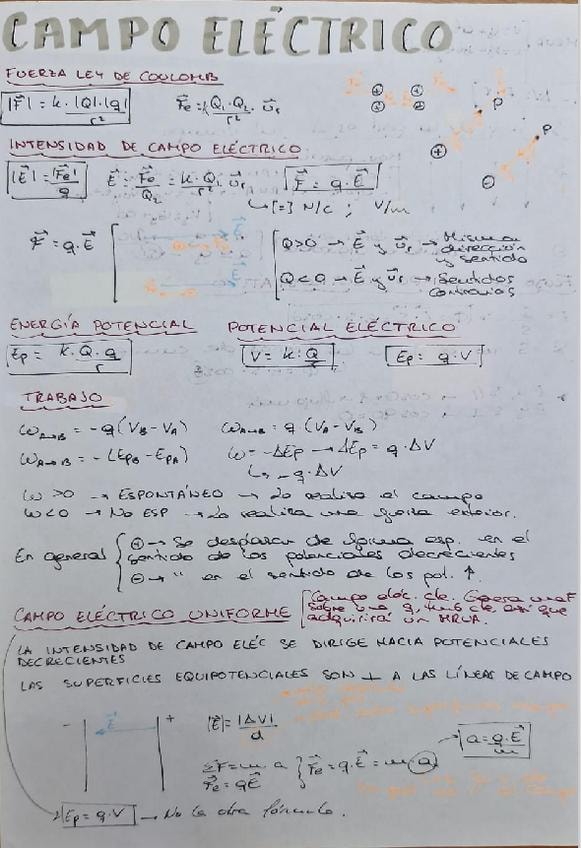 CAMPO ELÉCTRICO
FUERZA LEY DE COULOMB
|F⃗| = k·|Q|·|q|/r²    F⃗e = k Q₁·Q₂/r² · u⃗r
⊕ ⊕
⊕ ⊕
P
P
⊕
⊖
INTENSIDAD DE CAMPO ELÉCTRICO
|E⃗| = |F⃗e|/q    E⃗ = F⃗e/Q₂ = k·Q/r² u⃗r    F⃗ = q·E⃗
↳ [=] N/C ; V/m
F⃗ = q·E⃗    E⃗
Q>0 → E⃗ y u⃗r → Misma dirección y sentido
E⃗
Q<0 → E⃗ y u⃗r → Sentidos contrarios
ENERGÍA POTENCIAL    POTENCIAL ELÉCTRICO
Ep = k·Q·q/r    V = k·Q/r    Ep = q·V
TRABAJO
ωA→B = -q(VB - VA)    ωA→B = q(VA - VB)
ωA→B = -(EpB - EpA)    ω = -ΔEp → ΔEp = q·ΔV
↳ -q·ΔV
ω >0 → ESPONTÁNEO → Lo realiza el campo
ω<0 → No ESP → Lo realiza una fuerza exterior.
En general
⊕ → Se desplazan de forma esp. en el
sentido de los potenciales decrecientes
⊖ → " en el sentido de los pot. ↑
CAMPO ELÉCTRICO UNIFORME
Campo eléc. cte. Genera una F
sobre una q, tmb cte así que
adquirirá un MRUA.
LA INTENSIDAD DE CAMPO ELÉC SE DIRIGE HACIA POTENCIALES
DECRECIENTES
LAS SUPERFICIES EQUIPOTENCIALES SON ⊥ A LAS LÍNEAS DE CAMPO
-    E⃗    +
|E⃗| = |ΔV|/d
ΣF = m·a
F⃗e = qE⃗
F⃗e = q·E⃗ = m·a
→ a = q·E⃗/m
Ep = q·V → No la otra fórmula.